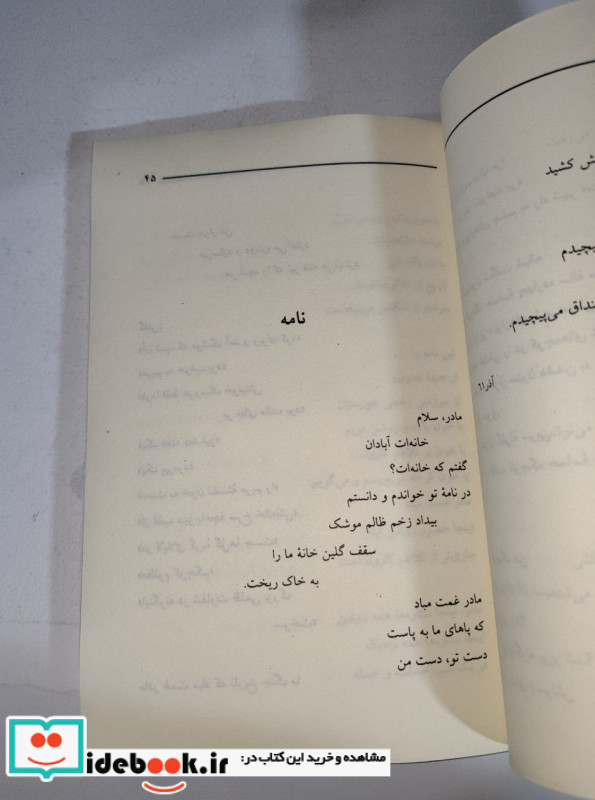 ش کشید
یچیدم
نداق می‌پیچیدم.
آذر ۶۱
۴۵
نامه
مادر، سلام
خانه‌ات آبادان
گفتم که خانه‌ات؟
در نامهٔ تو خواندم و دانستم
بیداد زخم ظالم موشک
سقف گلین خانهٔ ما را
به خاک ریخت.
مادر غمت مباد
که پاهای ما به پاست
دست تو، دست من
idebook.ir
مشاهده و خرید این کتاب در: